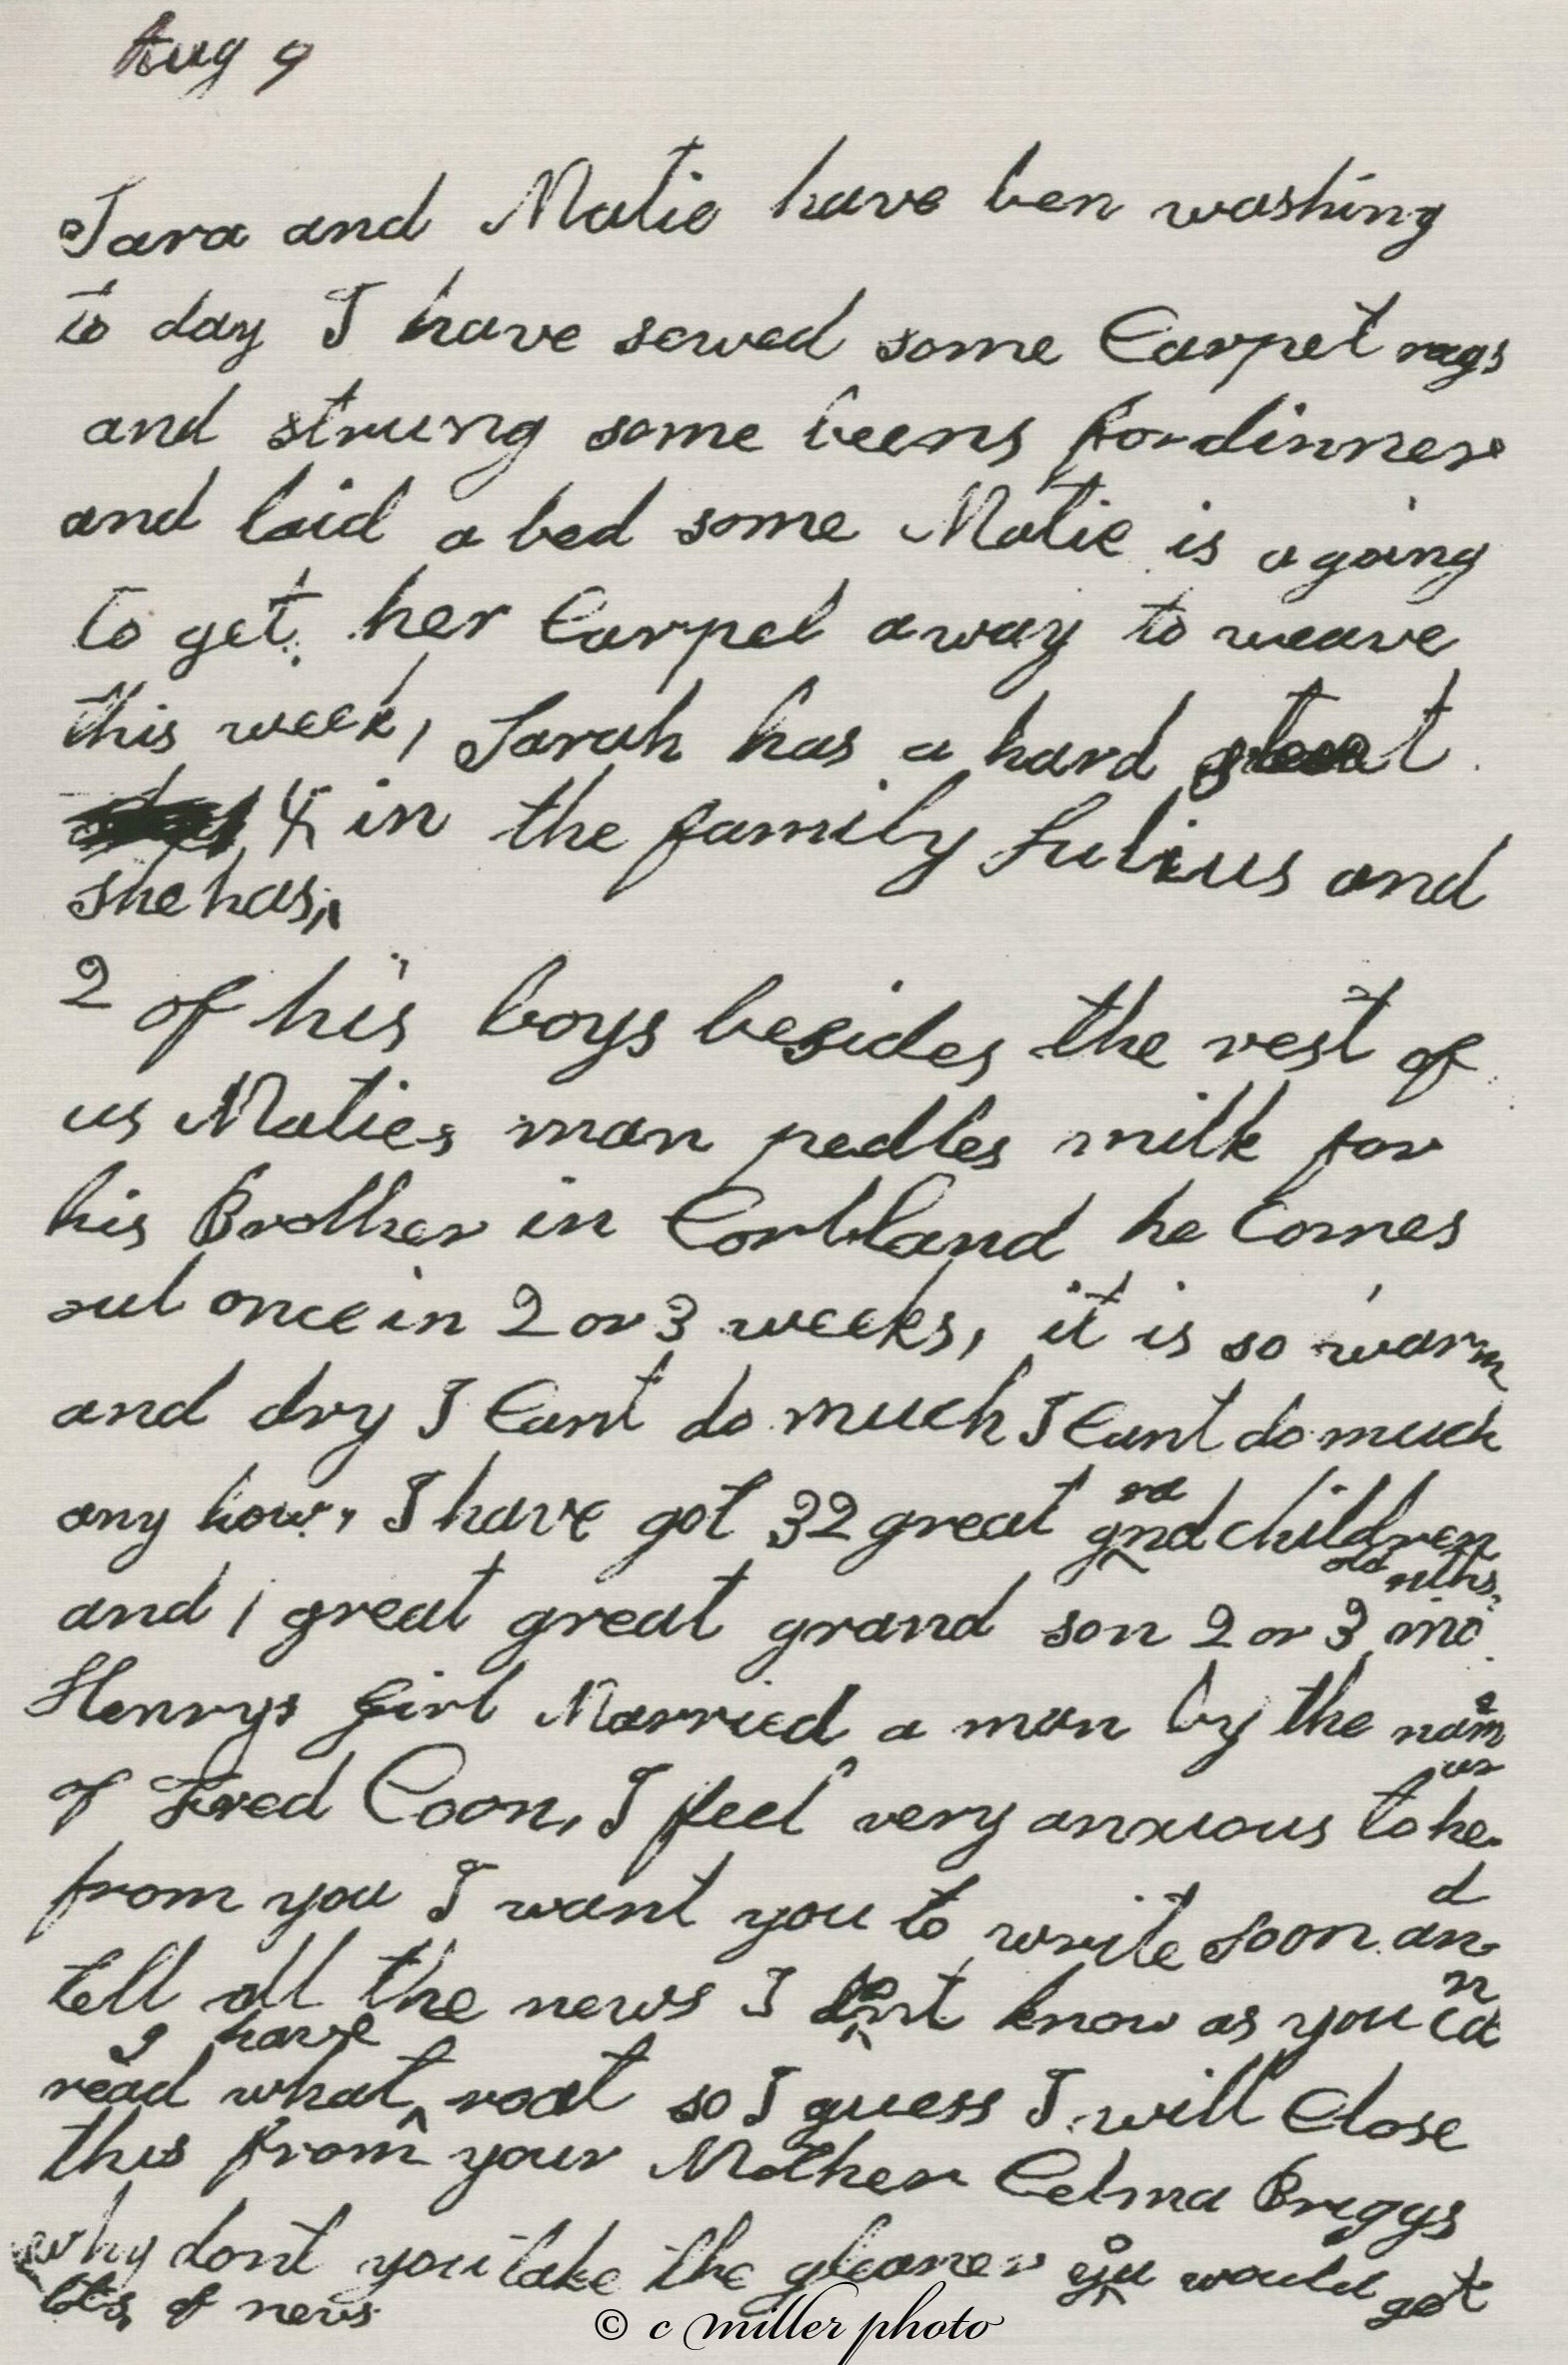 Aug 9
Sara and Matie have ben washing
to day I have sewed some Carpet rags
and strung some beens for dinner
and laid a bed some Matie is a going
to get her Carpet away to weave
this week, Sarah has a hard
4 in the family Julius and
she has,
2 of his boys besides the rest of
us Maties man pedles milk for
his Brother in Cortland he Comes
out once in 2 or 3 weeks, it is so warm
and dry I Cant do much I Cant do much
any how, I have got 32 great grandchildren
and 1 great great grand son 2 or 3 mo old
Henrys Girl Married a man by the name
of Fred Coon, I feel very anxious to hear
from you I want you to write soon and
tell all the news I dont know as you can
read what I have roat so I guess I will Close
this from your Mother Celma Briggs
why dont you take the gleaner you would get
lots of news
© c miller photo